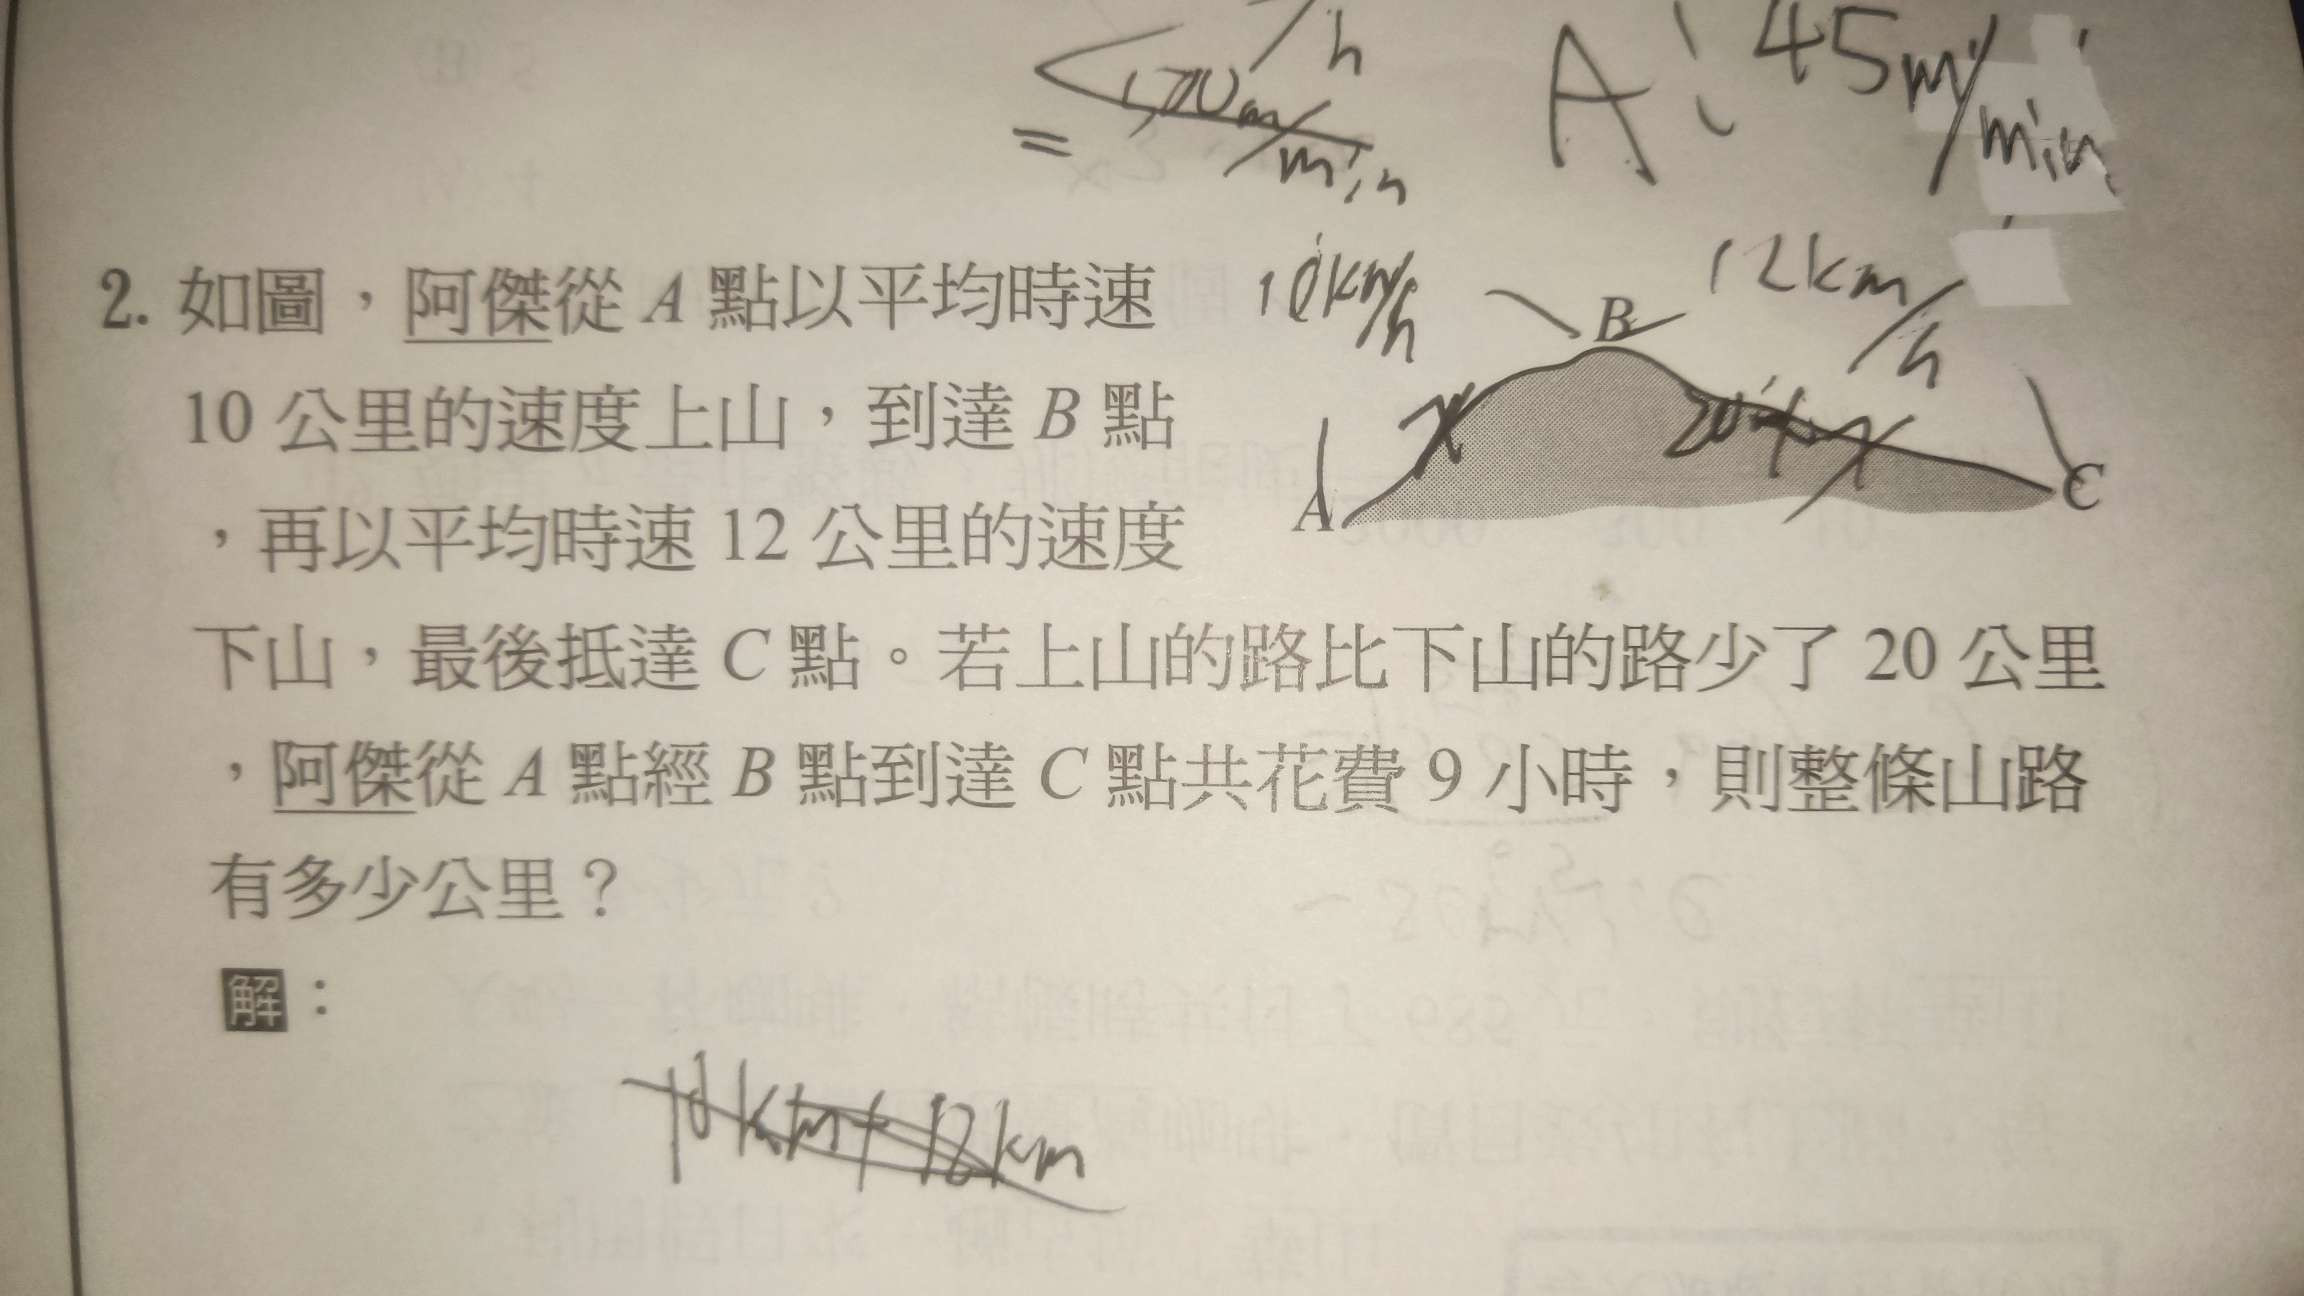 /h
= 700m/min
A: 45m/min
10km/h
12km/h
2. 如圖，阿傑從 A 點以平均時速
B
10 公里的速度上山，到達 B 點
x
20+x
A
C
，再以平均時速 12 公里的速度
下山，最後抵達 C 點。若上山的路比下山的路少了 20 公里
，阿傑從 A 點經 B 點到達 C 點共花費 9 小時，則整條山路
有多少公里？
解：
10km+12km